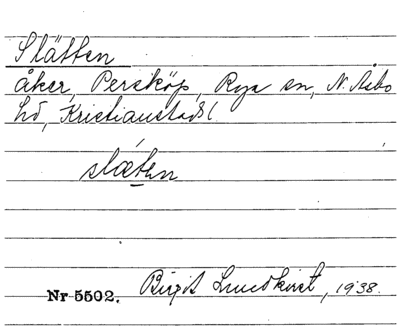 Slätten
åker, Persköp, Rya sn, N. Åsbo
hd, Kristianstads l.
slæten
Nr 5502. Birgit Lundkvist, 1938.